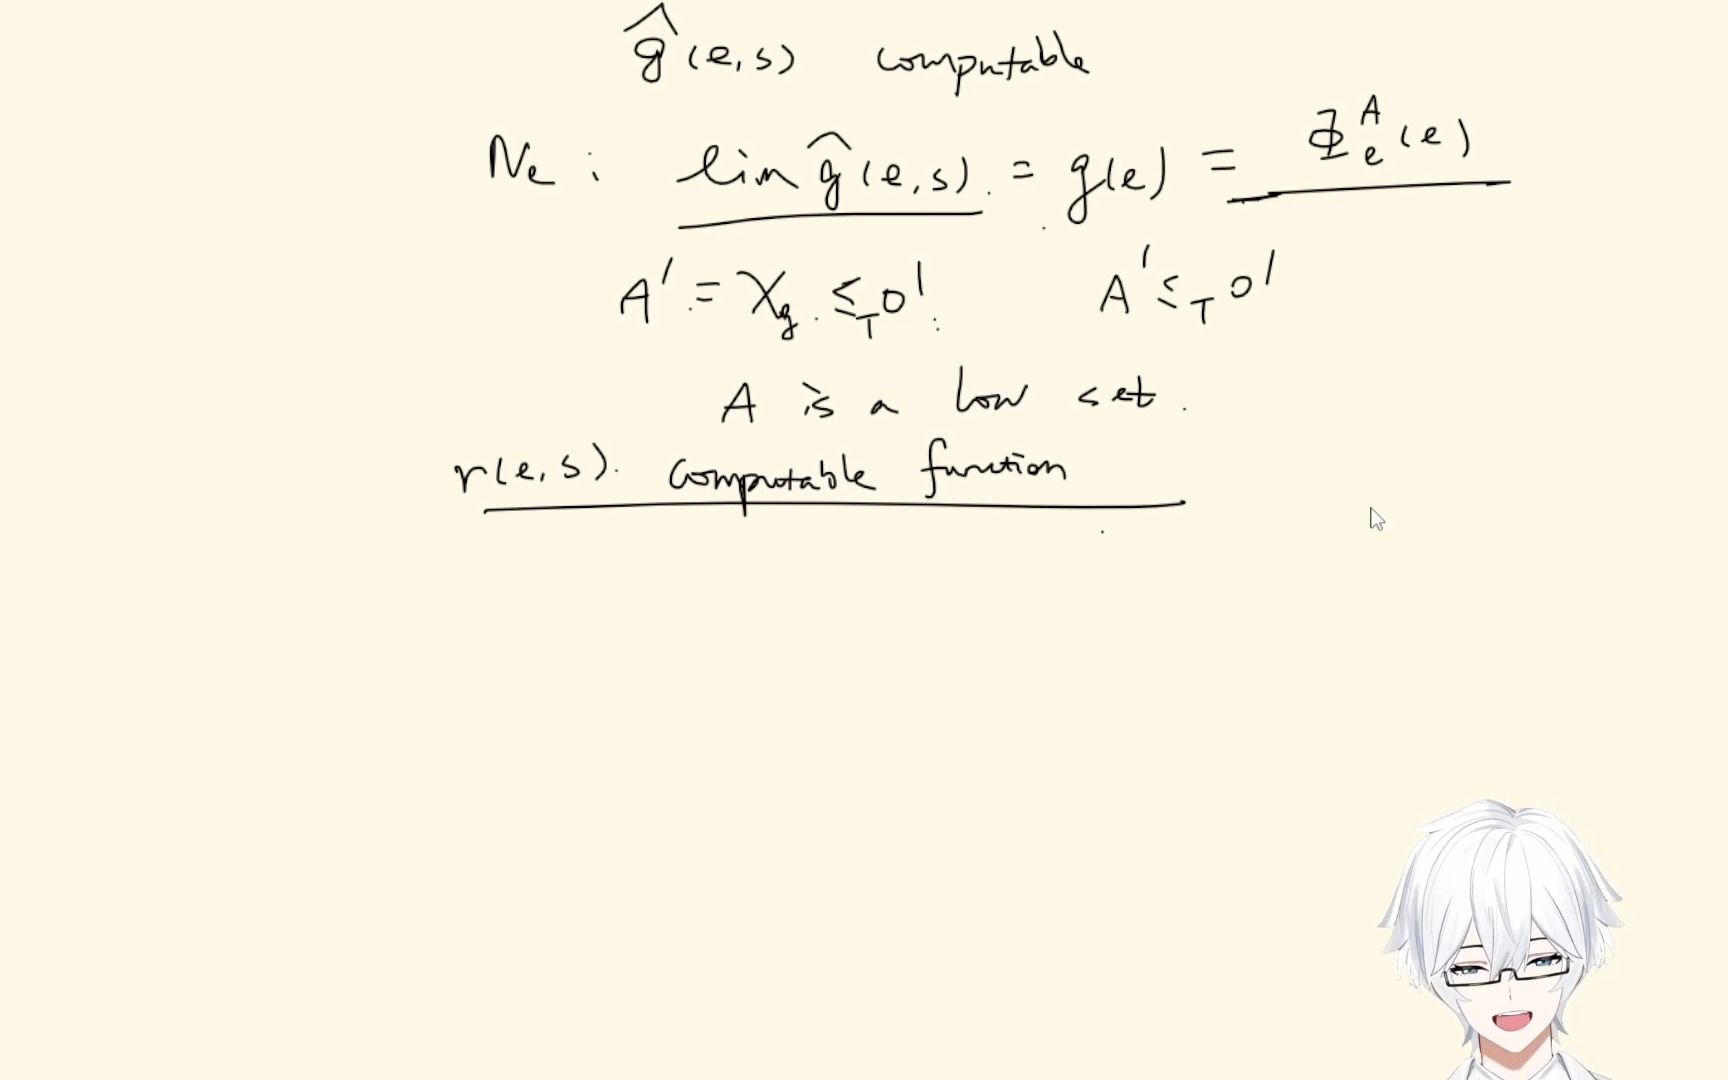 ĝ(e,s) computable
Nₑ : lim ĝ(e,s) = g(e) = Φₑᴬ(e)
A' = χ_g ≤_T 0' A' ≤_T 0'
A is a low set.
r(e,s). computable function